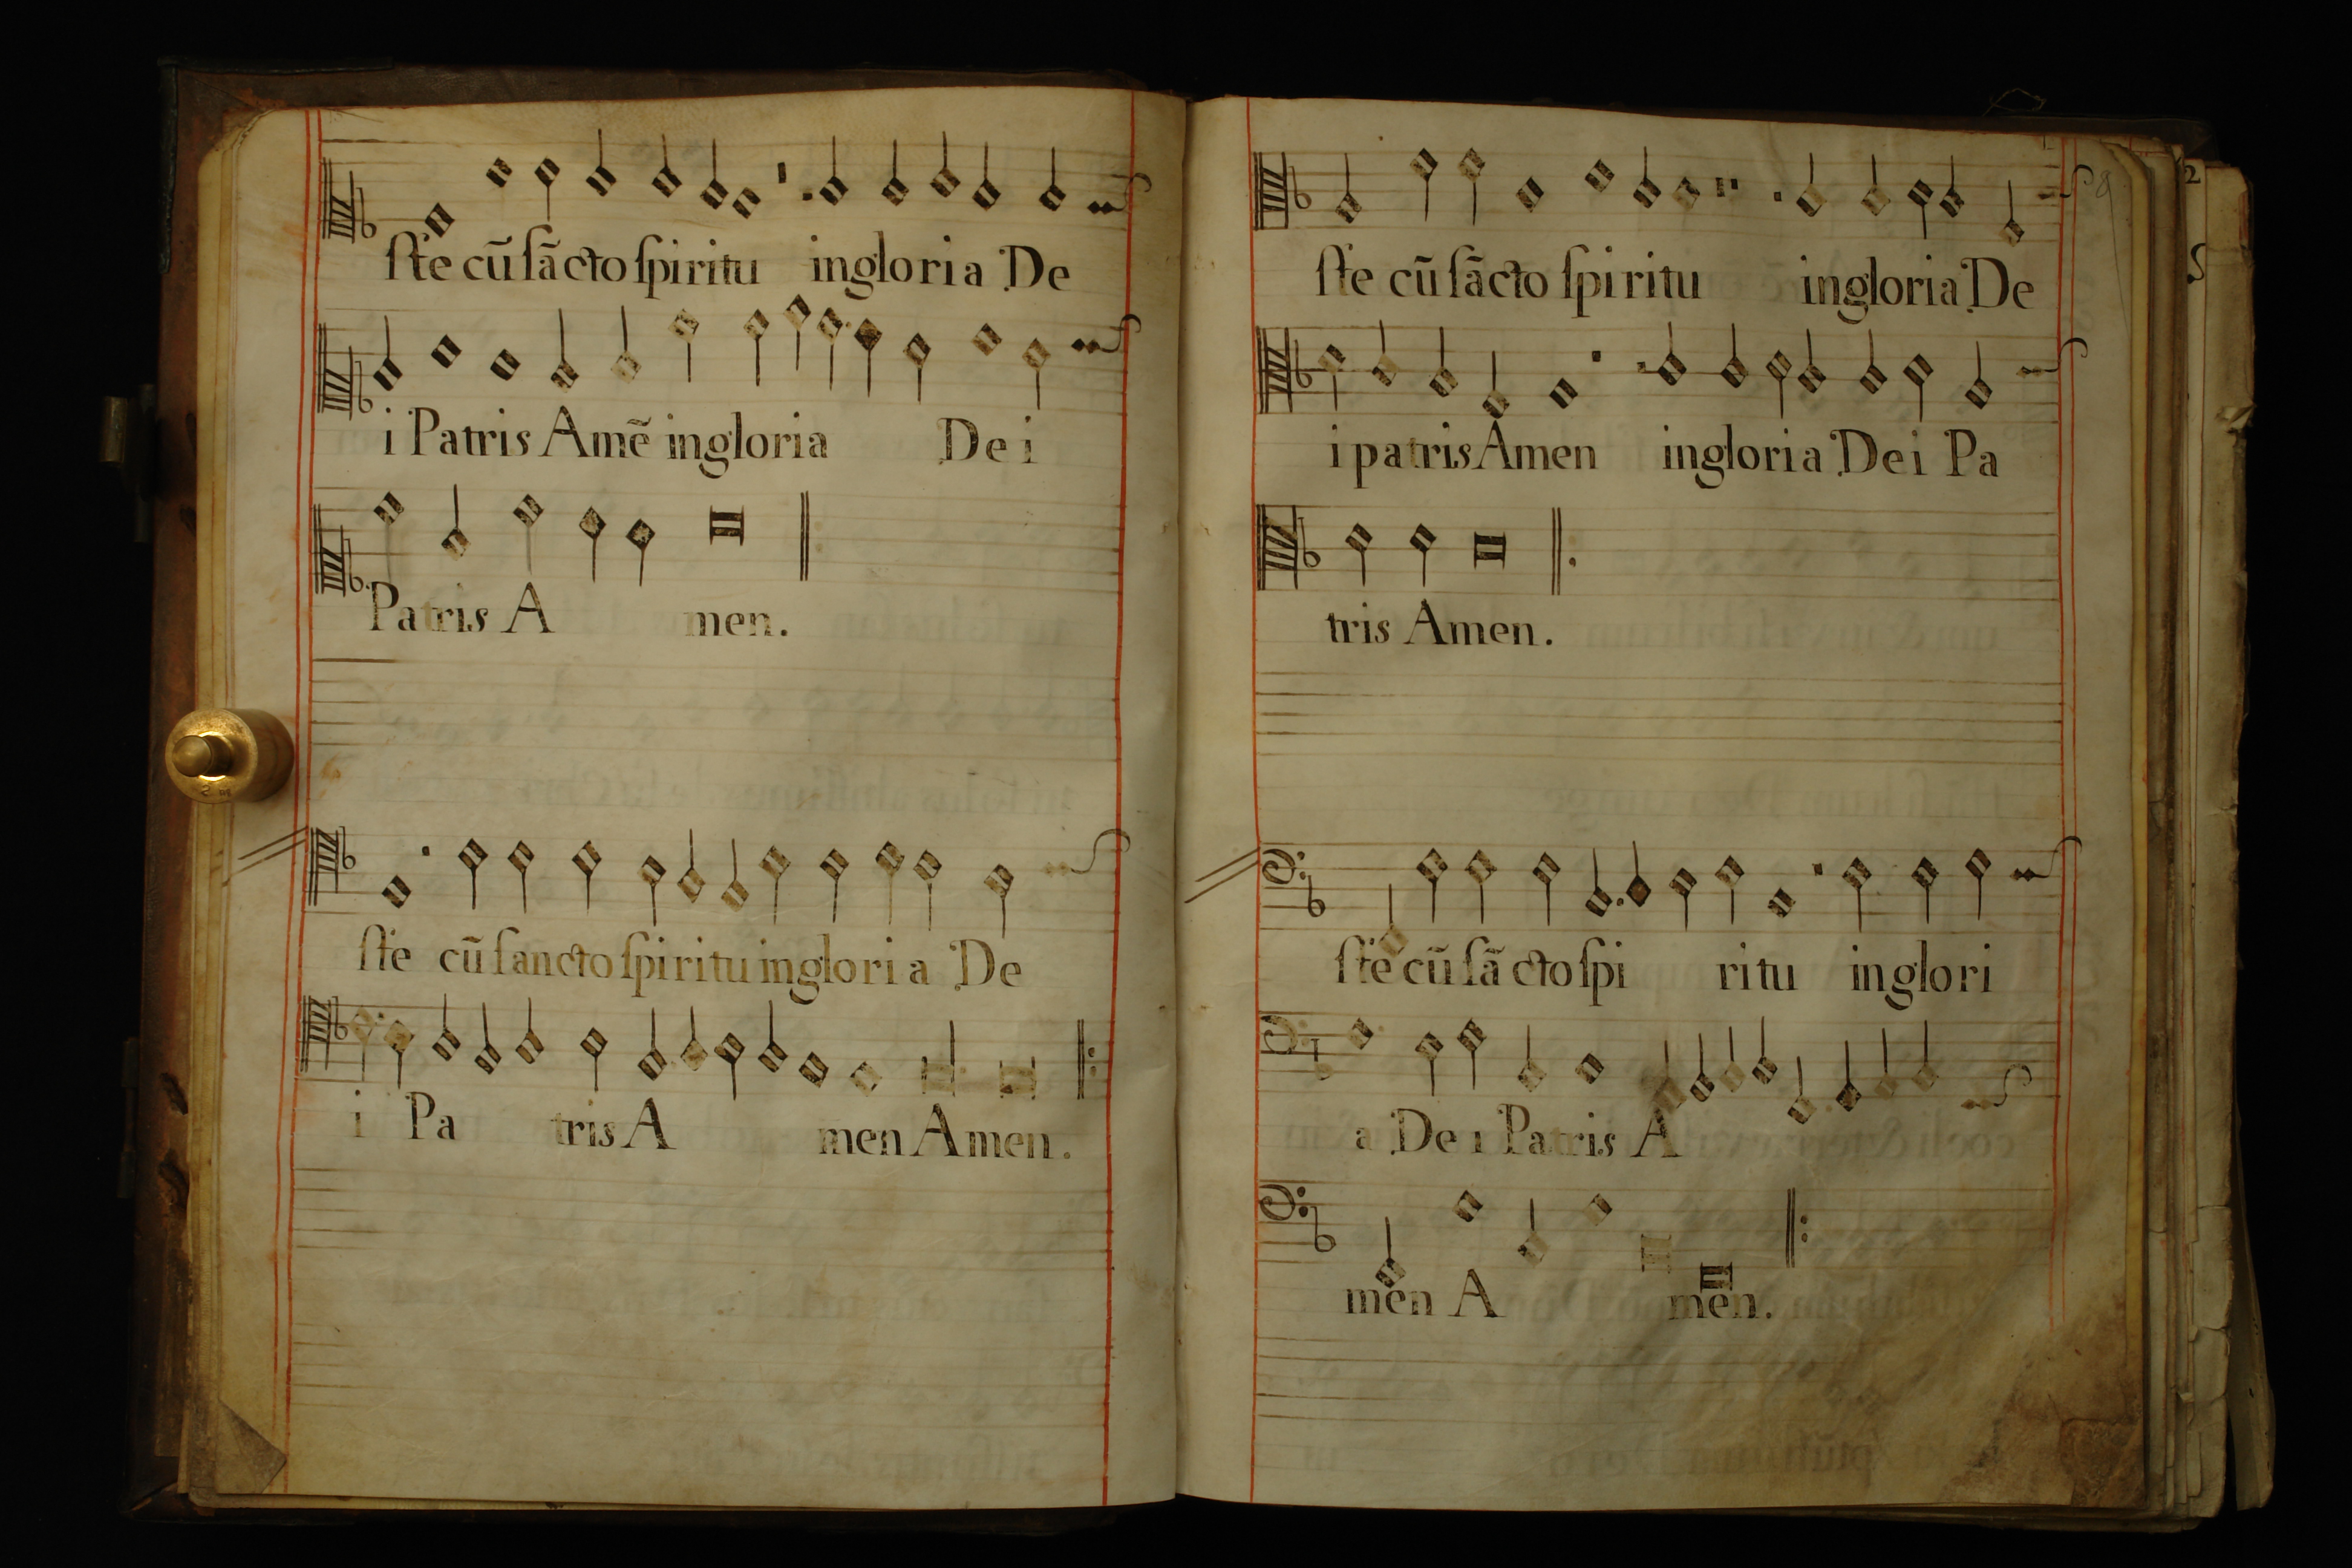 ste cũ sãcto spiritu in gloria De
i Patris Amẽ in gloria De i
Patris A men.
ste cũ sancto spiritu in gloria De
i Pa tris A men Amen.
ste cũ sãcto spiritu in gloria De
i patris Amen in gloria Dei Pa
tris Amen.
ste cũ sã cto spi ritu in glori
a De i Patris A
men A men.
2